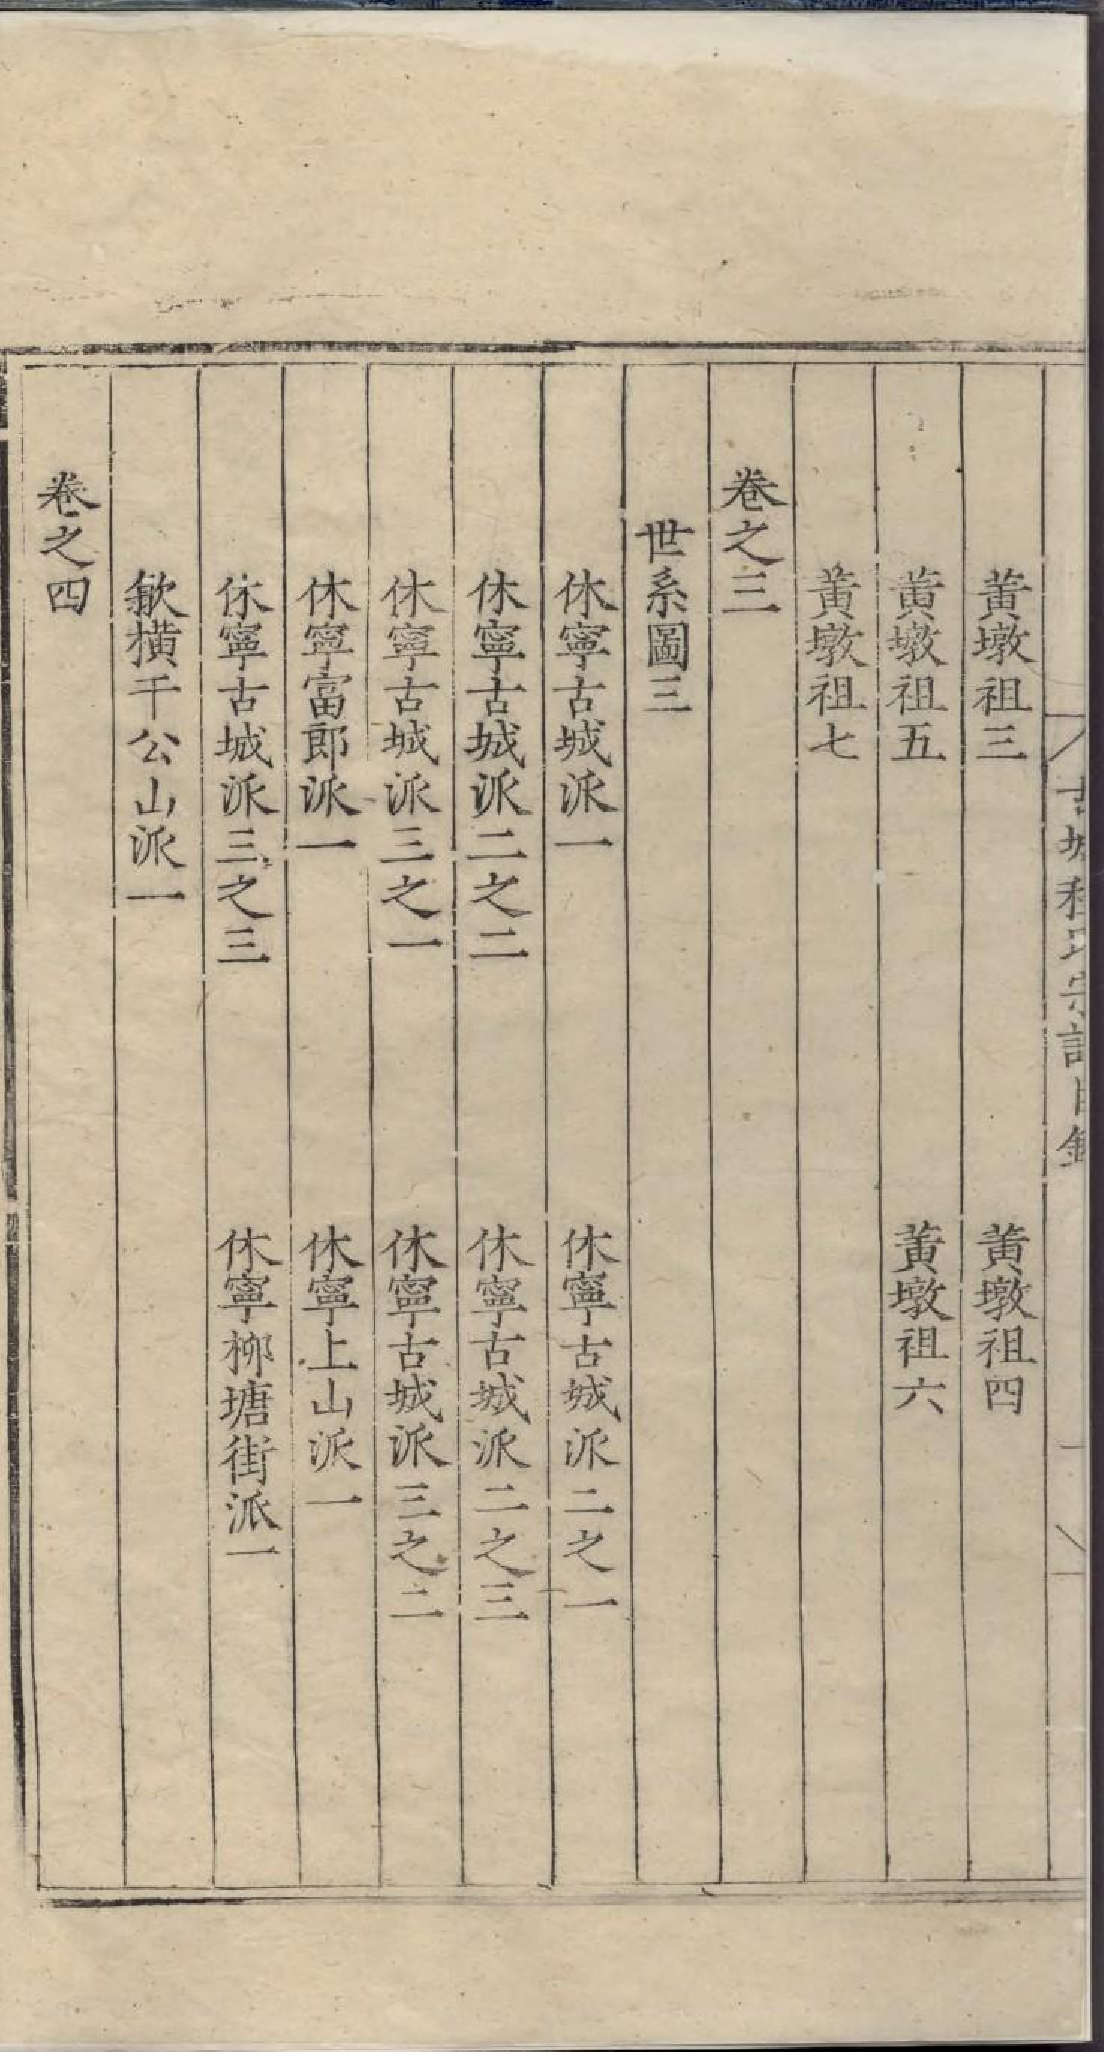 古城程氏宗譜目錄
黃墩祖三　黃墩祖四
黃墩祖五　黃墩祖六
黃墩祖七
卷之三
世系圖三
休寧古城派一　休寧古城派二之一
休寧古城派二之二　休寧古城派二之三
休寧古城派三之一　休寧古城派三之二
休寧富郎派一　休寧上山派一
休寧古城派三之三　休寧柳塘街派一
歙橫干公山派一
卷之四